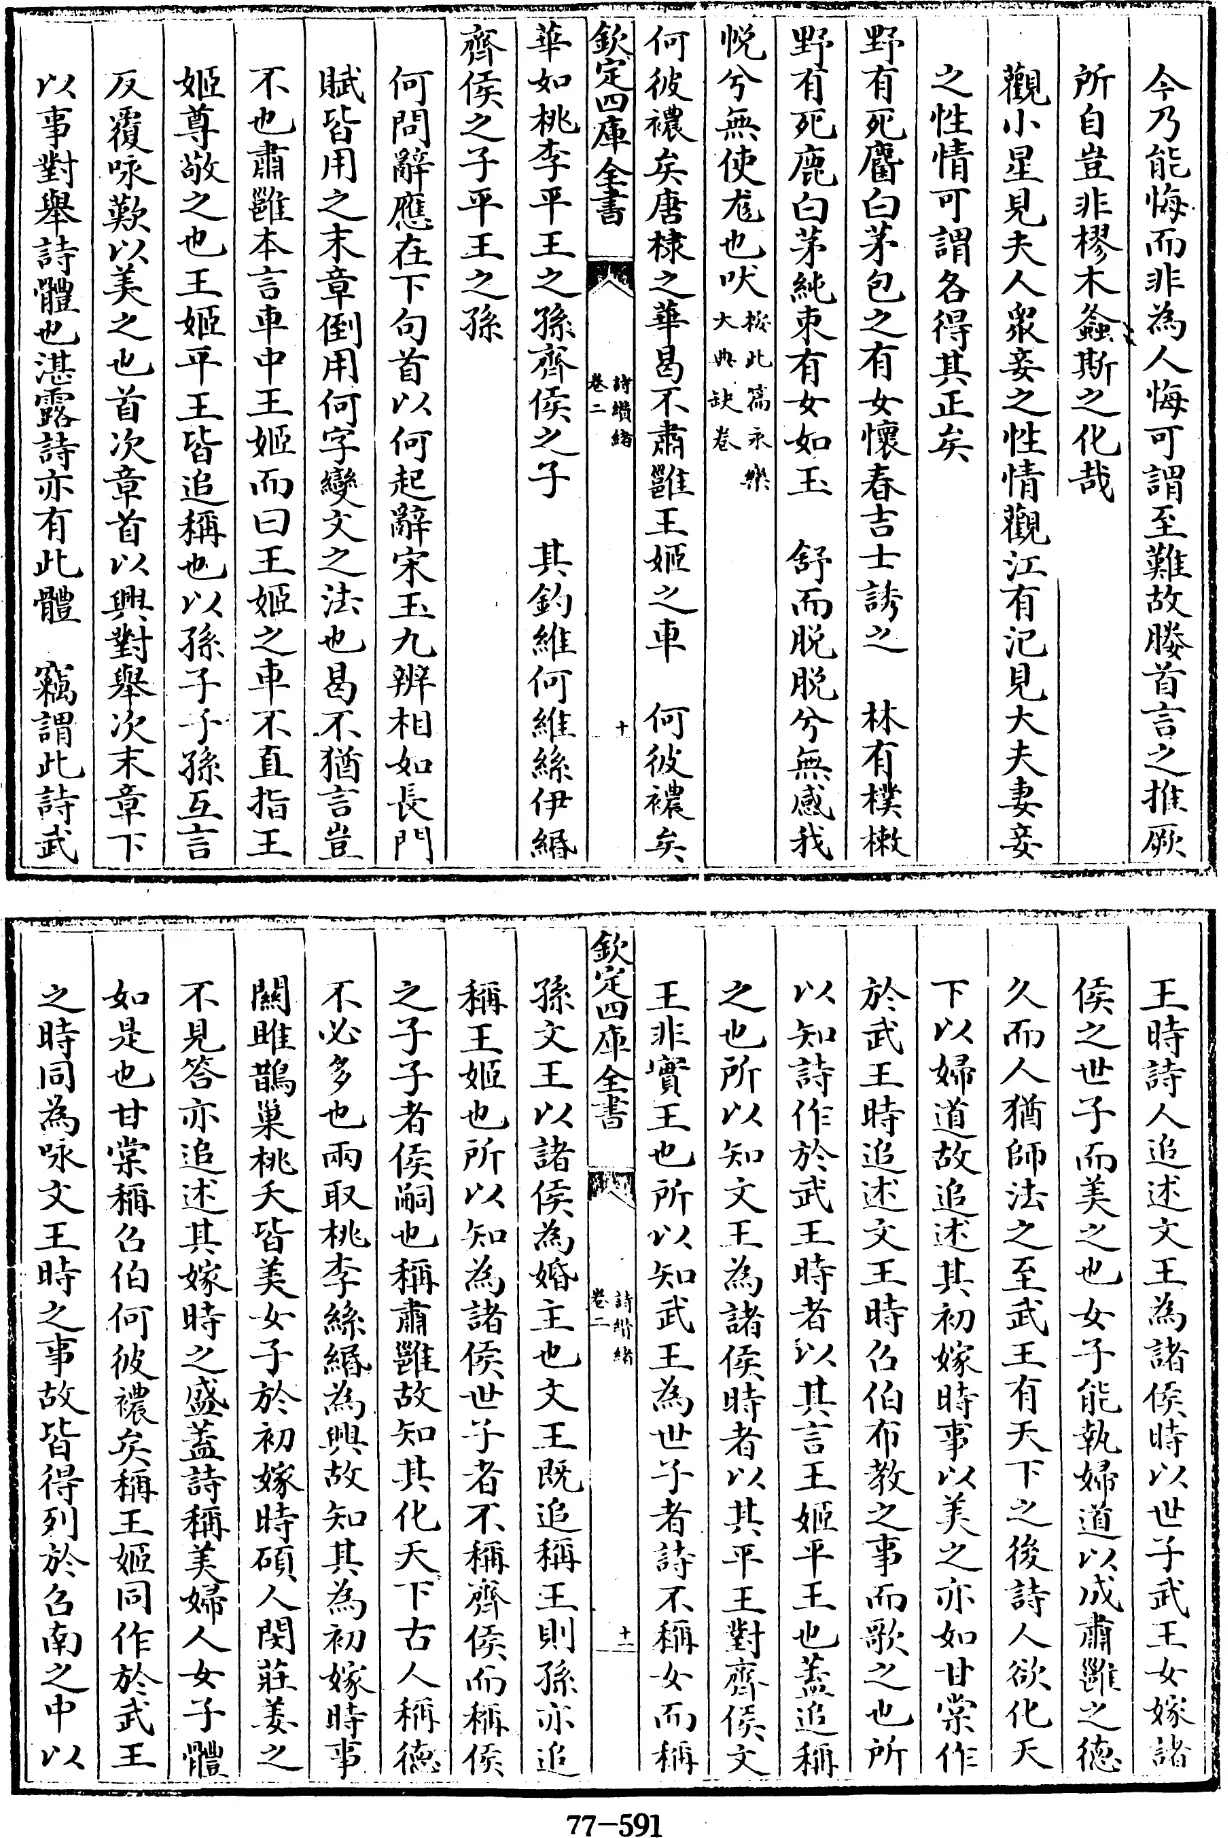 今乃能悔而非為人悔可謂至難故媵首言之推厥
所自豈非樛木螽斯之化哉
觀小星見夫人衆妾之性情觀江有汜見大夫妻妾
之性情可謂各得其正矣
野有死麕白茅包之有女懷春吉士誘之　林有樸樕
野有死鹿白茅純束有女如玉　舒而脱脱兮無感我
帨兮無使尨也吠按此篇永樂
大典缺卷
何彼襛矣唐棣之華曷不肅雝王姬之車　何彼襛矣
欽定四庫全書
詩纉緒
卷二
十
華如桃李平王之孫齊侯之子　其釣維何維絲伊緡
齊侯之子平王之孫
何問辭應在下句首以何起辭宋玉九辨相如長門
賦皆用之末章倒用何字變文之法也曷不猶言豈
不也肅雝本言車中王姬而曰王姬之車不直指王
姬尊敬之也王姬平王皆追稱也以孫子子孫互言
反覆咏歎以美之也首次章首以興對舉次末章下
以事對舉詩體也湛露詩亦有此體　竊謂此詩武
王時詩人追述文王為諸侯時以世子武王女嫁諸
侯之世子而美之也女子能執婦道以成肅雝之德
久而人猶師法之至武王有天下之後詩人欲化天
下以婦道故追述其初嫁時事以美之亦如甘棠作
於武王時追述文王時召伯布教之事而歌之也所
以知詩作於武王時者以其言王姬平王也蓋追稱
之也所以知文王為諸侯時者以其平王對齊侯文
王非實王也所以知武王為世子者詩不稱女而稱
欽定四庫全書
詩纉緒
卷二
十一
孫文王以諸侯為婚主也文王既追稱王則孫亦追
稱王姬也所以知為諸侯世子者不稱齊侯而稱侯
之子子者侯嗣也稱肅雝故知其化天下古人稱德
不必多也兩取桃李絲緡為興故知其為初嫁時事
關雎鵲巢桃夭皆美女子於初嫁時碩人閔莊姜之
不見答亦追述其嫁時之盛蓋詩稱美婦人女子體
如是也甘棠稱召伯何彼襛矣稱王姬同作於武王
之時同為咏文王時之事故皆得列於召南之中以
77-591